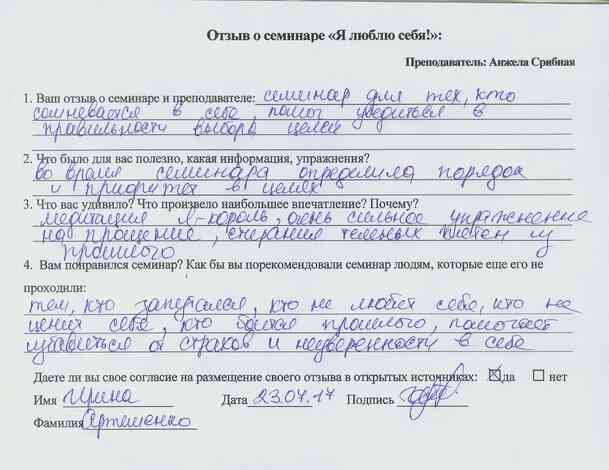 Отзыв о семинаре «Я люблю себя!»:
Преподаватель: Анжела Срибная
1. Ваш отзыв о семинаре и преподавателе: семинар для тех, кто
сомневается в себе, помог убедиться в
правильности выбора целей
2. Что было для вас полезно, какая информация, упражнения?
во время семинара определила порядок
и приоритет в целях
3. Что вас удивило? Что произвело наибольшее впечатление? Почему?
медитация Я-король, очень сильное упражнение
на прощение, стирания темных пятен из
прошлого
4. Вам понравился семинар? Как бы вы порекомендовали семинар людям, которые еще его не
проходили:
тем, кто запутался, кто не любит себя, кто не
ценит себя, кто боится прошлого, помогает
избавиться от страхов и неуверенности в себе
Даете ли вы свое согласие на размещение своего отзыва в открытых источниках: да нет
Имя Ирина Дата 23.04.17 Подпись
Фамилия Артеменко